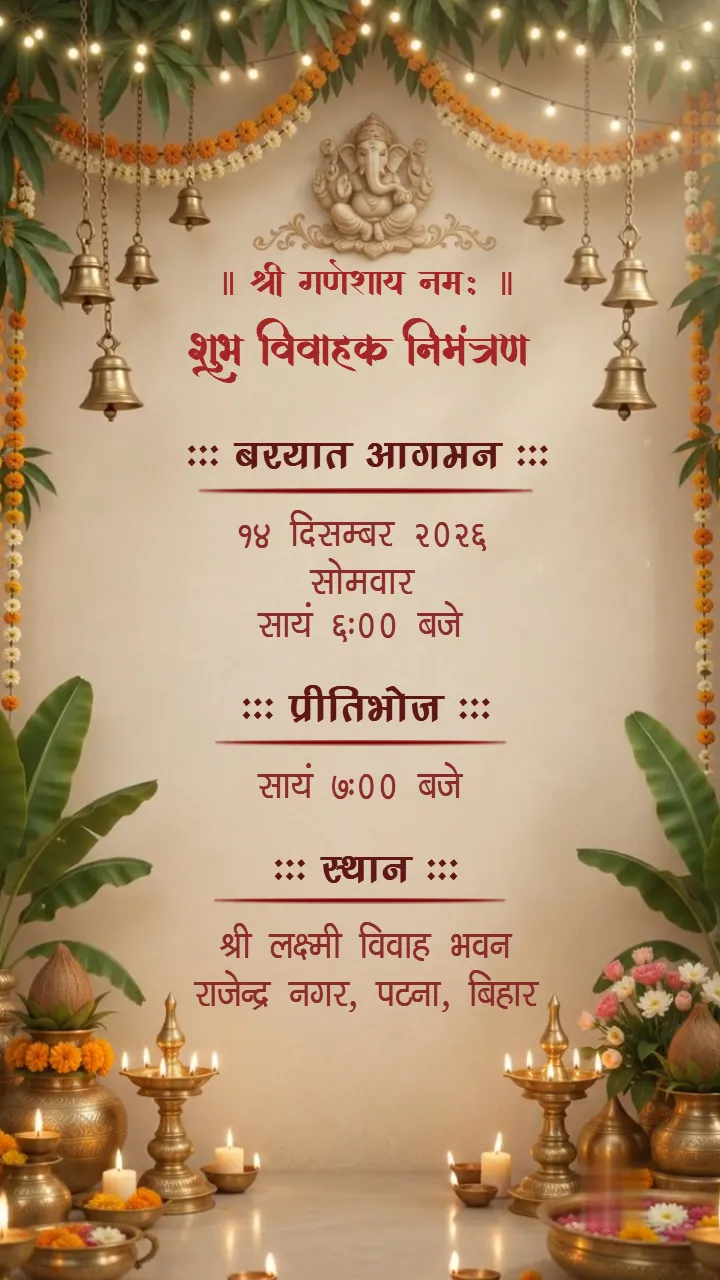 ॥ श्री गणेशाय नमः ॥
शुभ विवाहक निमंत्रण
::: बरयात आगमन :::
१४ दिसम्बर २०२६
सोमवार
सायं ६:०० बजे
::: प्रीतिभोज :::
सायं ७:०० बजे
::: स्थान :::
श्री लक्ष्मी विवाह भवन
राजेन्द्र नगर, पटना, बिहार